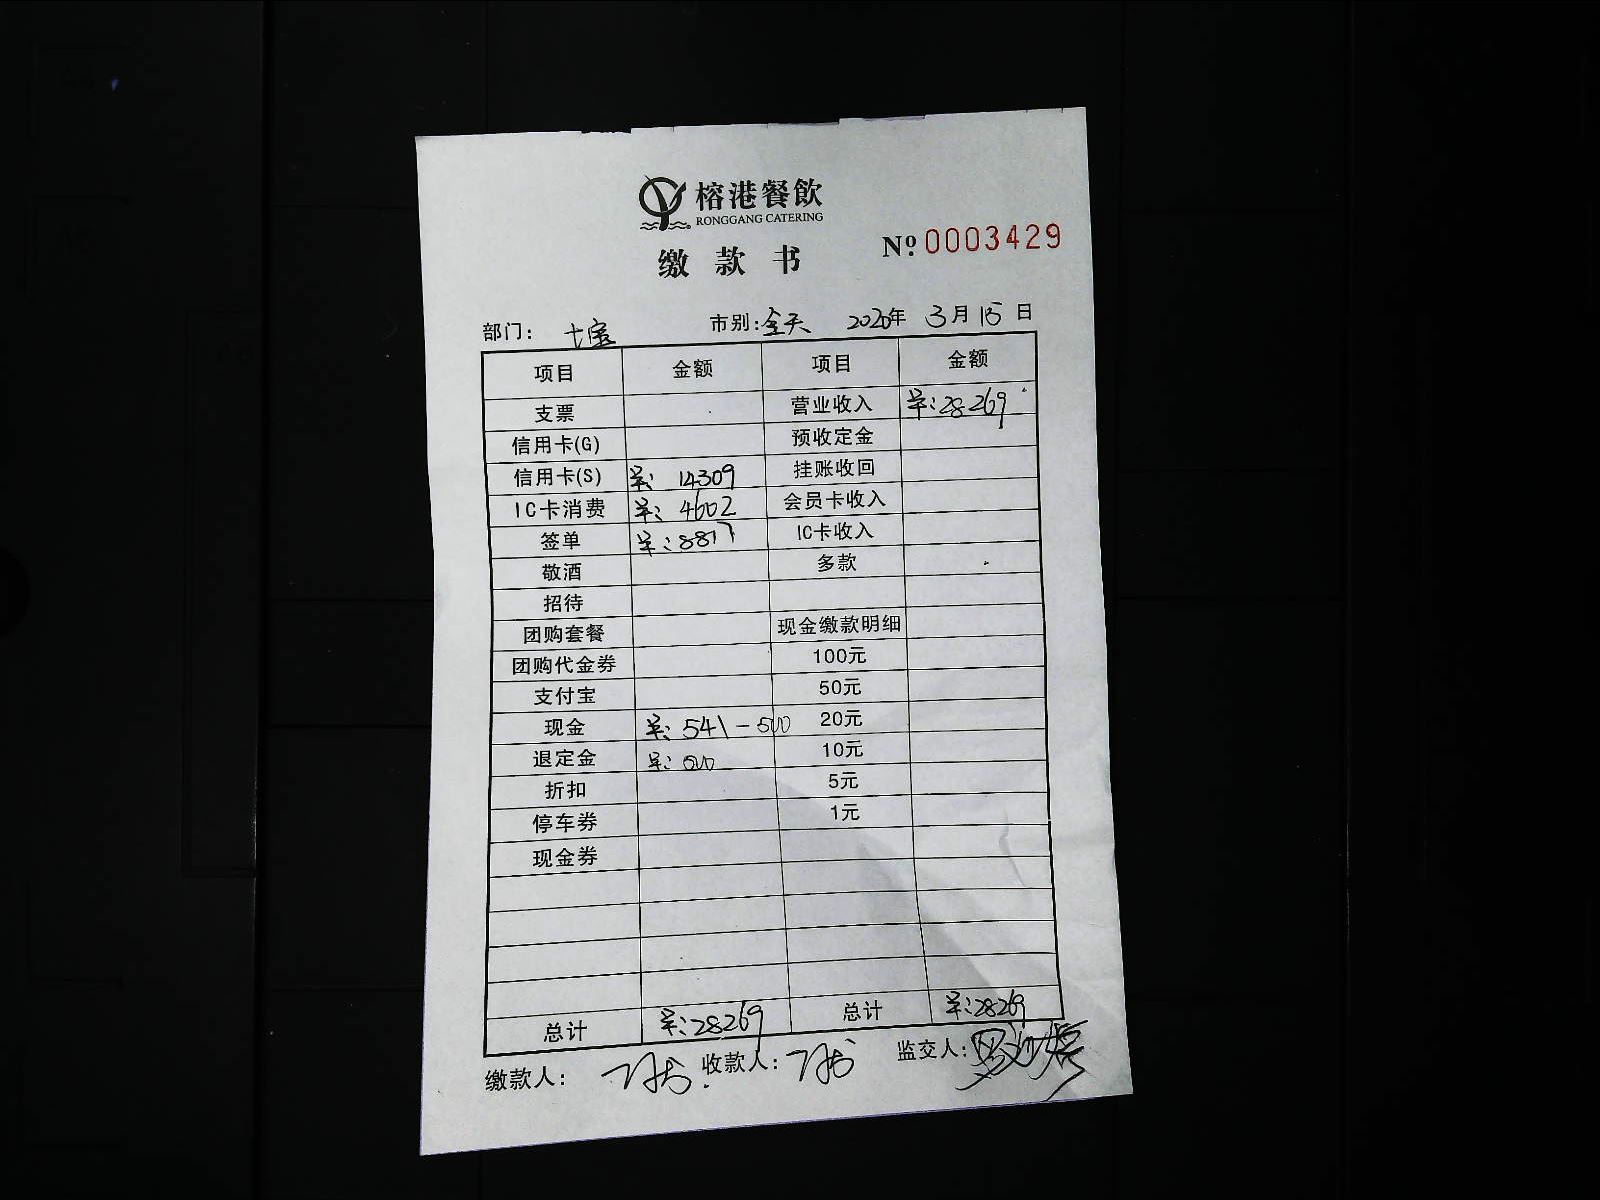 榕港餐飲
RONGGANG CATERING
缴款书
Nº 0003429
部门: 市别:全天 2020年 3月 15日
项目 金额 项目 金额
支票 营业收入 羊:28269
信用卡(G) 预收定金
信用卡(S) 羊: 14309 挂账收回
IC卡消费 羊: 4602 会员卡收入
签单 羊:8817 IC卡收入
敬酒 多款
招待
团购套餐 现金缴款明细
团购代金券 100元
支付宝 50元
现金 羊: 541-500 20元
退定金 羊: 500 10元
折扣 5元
停车券 1元
现金券
总计 羊:28269 总计 羊:28269
缴款人: 收款人: 监交人: